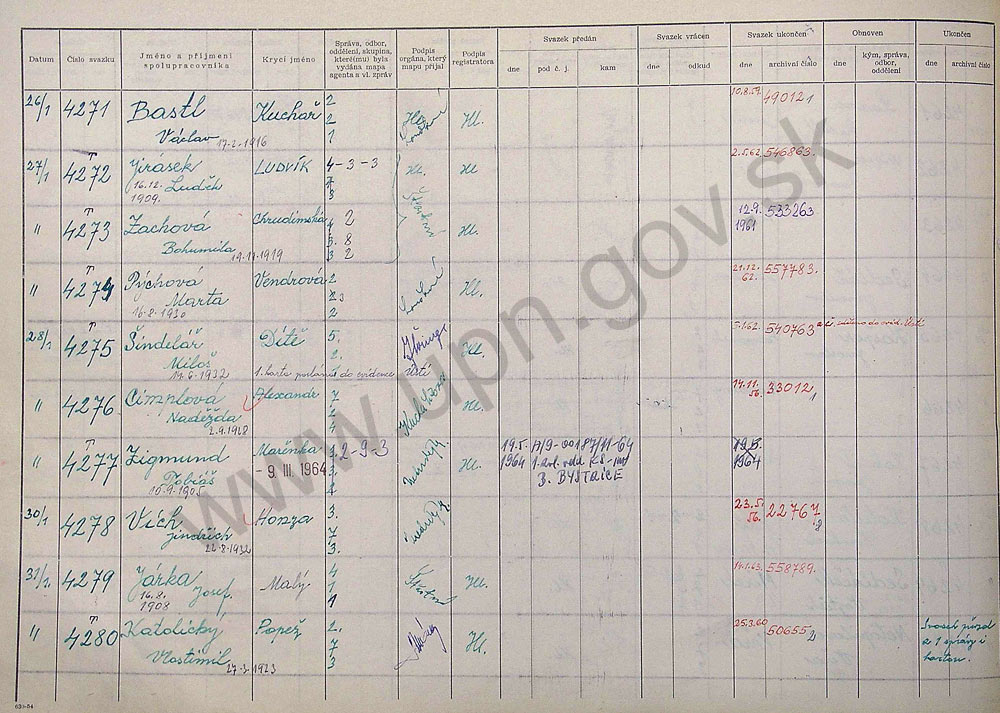 Datum
Číslo svazku
Jméno a příjmení spolupracovníka
Krycí jméno
Správa, odbor, oddělení, skupina, které(mu) byla vydána mapa agenta s vl. zpráv
Podpis orgána, který mapu přijal
Podpis registrátora
Svazek předán
dne
pod č. j.
kam
Svazek vrácen
dne
odkud
Svazek ukončen
dne
archivní číslo
Obnoven
dne
kým, správa, odbor, oddělení
Ukončen
dne
archivní číslo
26/1 4271 Bastl Kuchař 2 Hl. 10.8.57. 49012 1
Václav 17-2-1916 2
1
27/1 T 4272 Jirásek LUDVÍK 4-3-3 Hl. Hl 2.5.62. 546863.
16.12. Luděk
1909.
" T 4273 Zachová Chrudimská 2 Hl. 12.9. 533263
Bohumila 19-11-1919 8 1961
2
" T 4274 Pýchová Vendrová 2. Hl. 21.12. 557783.
Marta 62.
16-8-1930 2
28/1 T 4275 Šindelář Dítě 5. Hl 5.1.62. 540763
Miloš 2.
14.6.1932 1. karta do evidence Ústí
" 4276 Cimplová Alexandr Hl. 14.11. 33012 1
Naděžda 56.
2.9.1918
" T 4277 Zigmund Mařenka 2-9-3 Hl. 19.5. A/9-00187/11-64
Tobiáš - 9 III 1964 1964 KS-MV 1964
10.9.1905 B. BYSTRICE
30/1 4278 Vích Honza 3. 23.5. 22767
Jindřich 7 56. 8
22-8-1932 3.
31/1 4279 Járka Malý. 4 Šťastný Hl. 14.1.63. 558789.
16.8. Josef. 7
1908 1
" T 4280 Katolický Papež 2. Hl. 25.3.60 50655
Vlastimil 7
27-2-1923 3
a 1 zprávy i
kartou.
630-54
www.upn.gov.sk